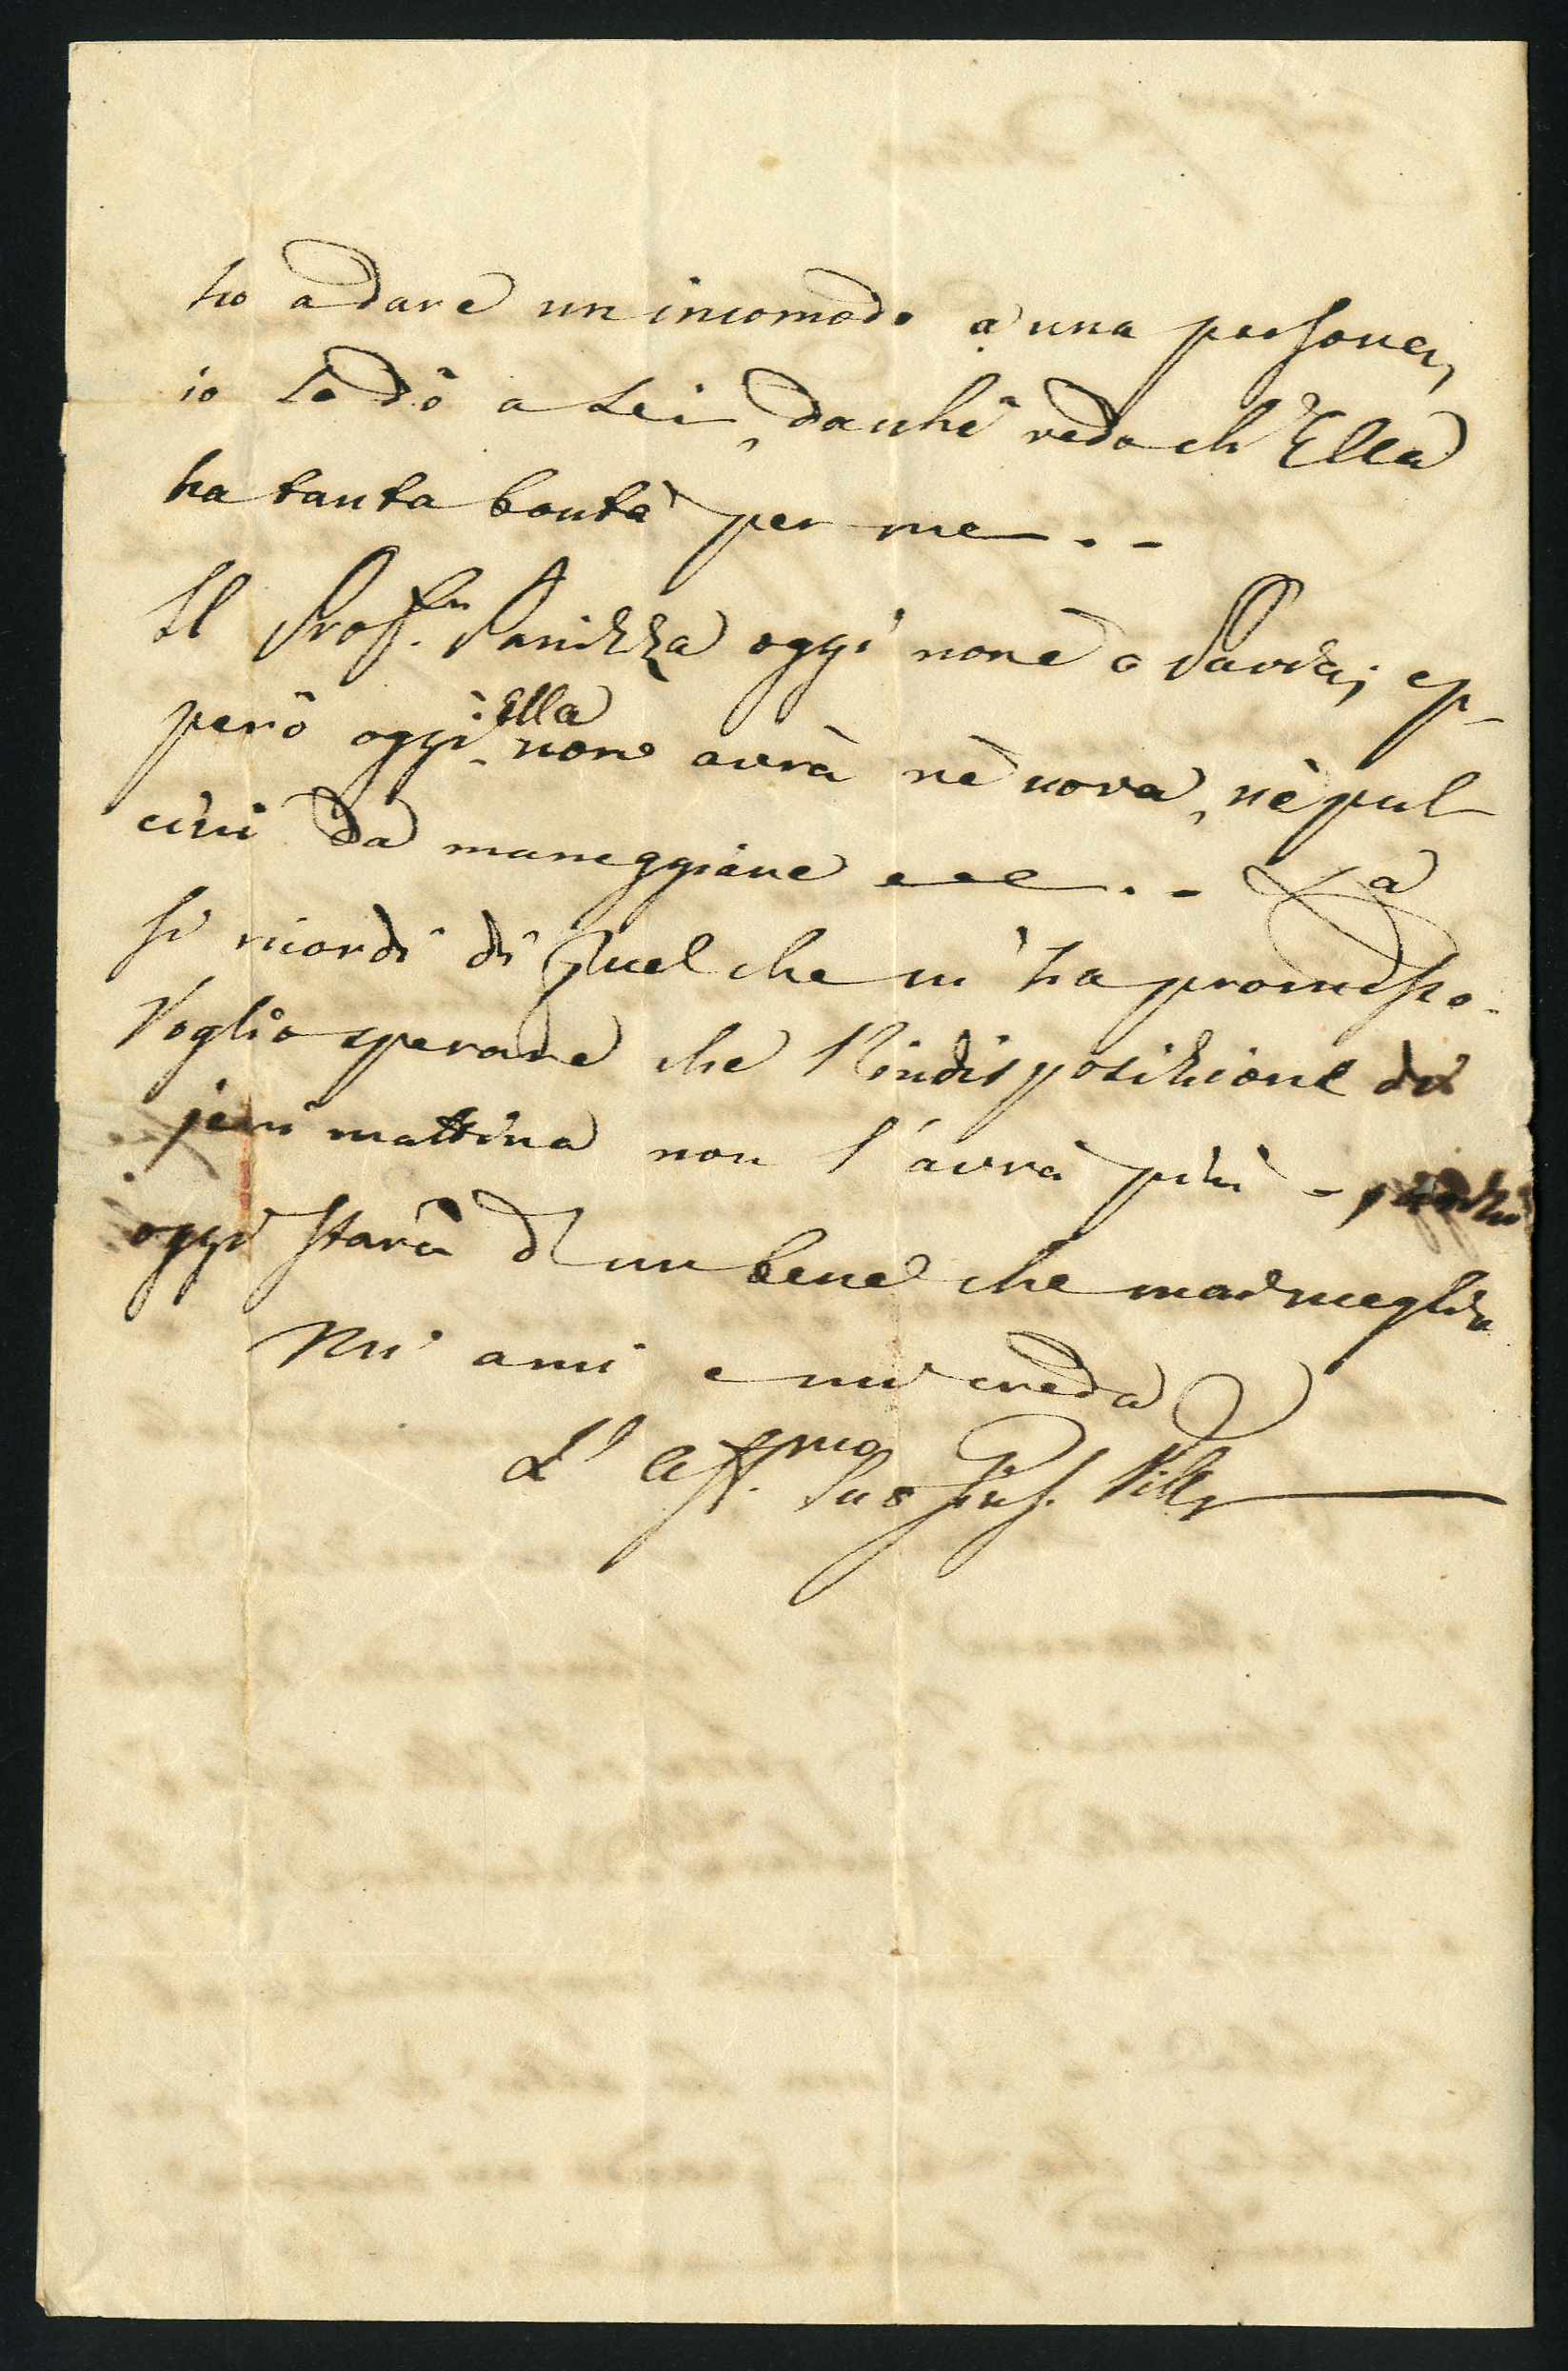 ho a dare un incomodo a una persona,
io lo dò a Lei, dacchè vedo ch' Ella
ha tanta bontà per me . -
Il Prof.r Panizza oggi non è a Pavia; ep-
però oggi Ella non avrà nè uova, nè pul
cini da maneggiare . - La
si ricordi di quel che m' ha promesso.
Voglio sperare che l'indisposizione di
jeri mattina non l'avrà più -
oggi starà d' un bene che mai meglio
Mi ami e mi creda
L' Aff.mo Suo